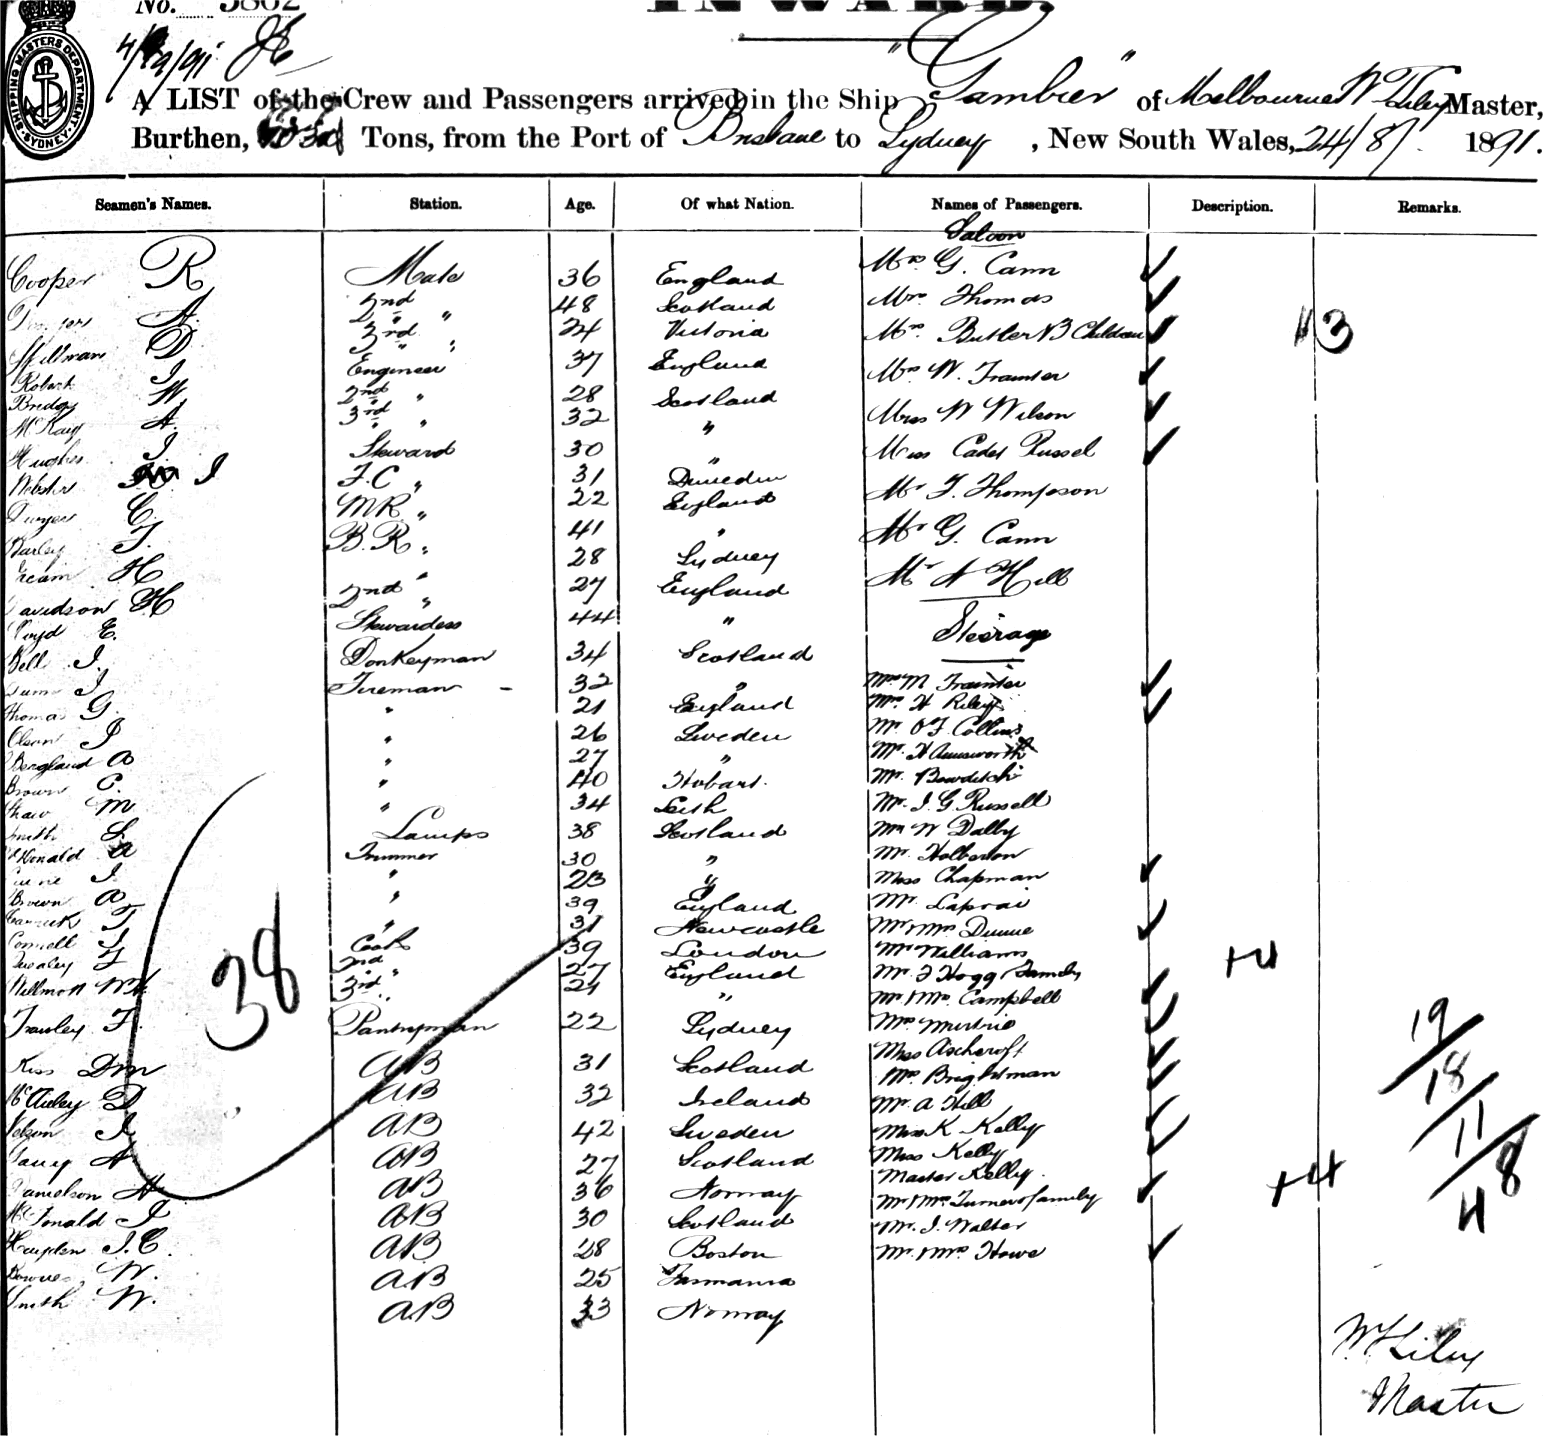 No. 5862
INWARD.
SHIPPING MASTERS DEPARTMENT SYDNEY
A LIST of the Crew and Passengers arrived in the Ship "Gambier" of Melbourne Master,
Burthen, Tons, from the Port of Brisbane to Sydney, New South Wales, 24/8/ 1891.
Seamen's Names. Station. Age. Of what Nation. Names of Passengers. Description. Remarks.
Saloon
Cooper R Mate 36 England Mrs G. Cann
A. 2nd " 48 Scotland Mrs Thomas
D 3rd " " 24 Victoria Mrs Butler & 3 Children 13
Robert J Engineer 37 England Mrs W. Trainter
W. 2nd " 28 Scotland Miss W Wilson
A. 3rd " " 32 "
Hughes J Steward 30 " Miss Cadet Russel
Webster J F.C " 31 Dunedin Mr T. Thompson
Dwyer C. MR " 22 England
Barley T. B.R " 41 " Mr G. Cann
H " 28 Sydney Mr A Hill
Davidson H 2nd " 27 England
Lloyd E. Stewardess 44 "
Steerage
Bell J. Donkeyman 34 Scotland
J Fireman - 32 " Mrs M Trainter
Thomas G. " 21 England Mrs H Riley
Olsen J " 26 Sweden Mr O F. Collins
Bergland A " 27 " Mr. H Ainsworth
Brown C. " 40 Hobart. Mr. Bowditch
Shaw M " 34 Leith Mr. J. G. Russell
Smith S. Lamps 38 Scotland Mr W Dalby
McDonald A Trimmer 30 " Mr. Holberton
J. " 23 " Miss Chapman
Brown A " 39 England Mr. Laprai
T " 31 Newcastle Mr Mrs Dunne
Connell J Cook 39 London Mr Williams
T 2nd " 27 England Mr. F Hogg Family +4
Willmott W.H. 3rd " 21 " Mr. Mrs. Campbell
38
Trawley F. Pantryman 22 Sydney Mrs Murtrie
Kiss D m AB 31 Scotland Miss Ashcroft
Mr. Brightman
McAuley D AB 32 Ireland Mr. A Hill
Nelson J AB 42 Sweden Miss K Kelly
A. AB 27 Scotland Miss Kelly
Master Kelly.
Danielson A AB 36 Norway Mr Mrs Turner & family +4
McDonald J AB 30 Scotland Mr. J. Walter
J. C. AB 28 Boston Mr. Mrs Howe
W. AB 25 Tasmania
Smith W. AB 33 Norway
19
18
11
48
W. T. Liley
Master